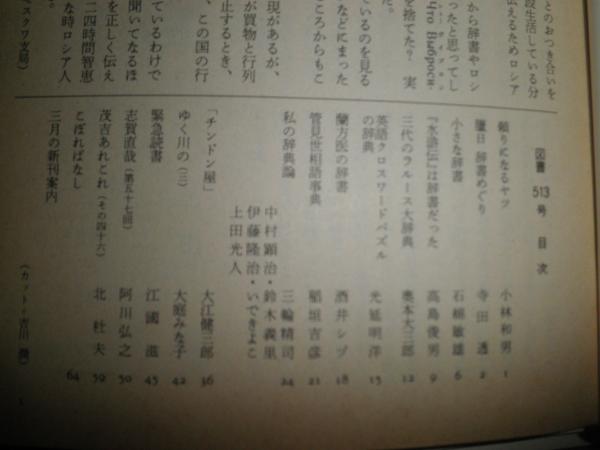 とのおつき合いを
段生活している分
伝えるためロシア
から辞書やロシ
ったと思ってし
Что Выброси-
を捨てた? 実
た。
ているのを見る
などにまった
ころからもこ
現があるが、
が買物と行列
止するとき、
、この国の行
ているわけで
聞いてなるほ
を正しく伝え
二四時間智恵
な時ロシア人
。
スクワ支局)
図書 513号 目次
頼りになるヤツ 小林和男 1
臘日 辞書めぐり 寺田透 2
小さな辞書 石綿敏雄 6
『水滸伝』は辞書だった 高島俊男 9
三代のラルース大辞典 奥本大三郎 12
英語クロスワードパズルの辞典 光延明洋 15
蘭方医の辞書 酒井シヅ 18
管見世相語事典 稲垣吉彦 21
私の辞典論 三輪精司 24
中村顕治・鈴木義里
伊藤隆治・いでさよこ
上田光人
「チンドン屋」 大江健三郎 36
ゆく川の(三) 大庭みな子 42
緊急読書 江國滋 45
志賀直哉(第五十七回) 阿川弘之 50
茂吉あれこれ(その四十六) 北杜夫 59
こぼればなし 64
三月の新刊案内
(カット=吉川